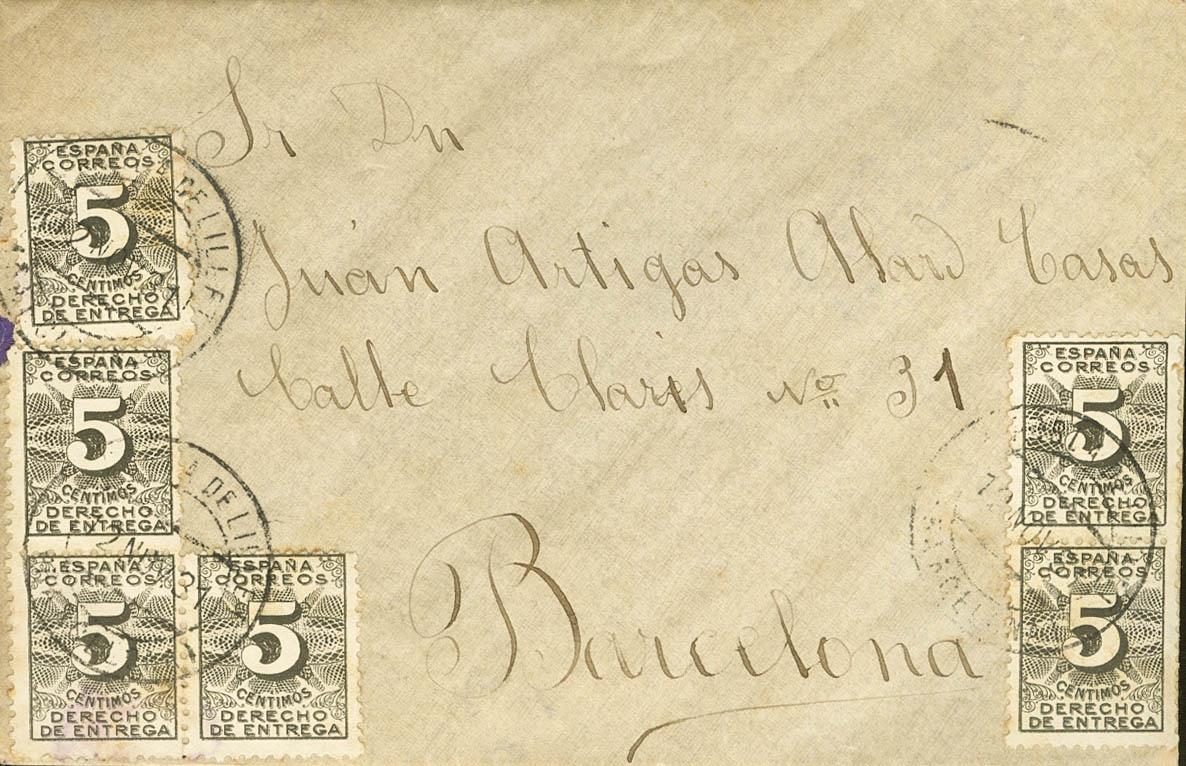 Sr Dn
Juán Artigas Alard Casas
Calle Claris No 31
Barcelona
ESPAÑA
CORREOS
5
CENTIMOS
DERECHO
DE ENTREGA
DE LILLET
ESPAÑA
CORREOS
5
CENTIMOS
DERECHO
DE ENTREGA
DE LILLET
ESPAÑA
CORREOS
5
CENTIMOS
DERECHO
DE ENTREGA
ESPAÑA
CORREOS
5
CENTIMOS
DERECHO
DE ENTREGA
ESPAÑA
CORREOS
5
CENTIMOS
DERECHO
DE ENTREGA
ESPAÑA
CORREOS
5
CENTIMOS
DERECHO
DE ENTREGA